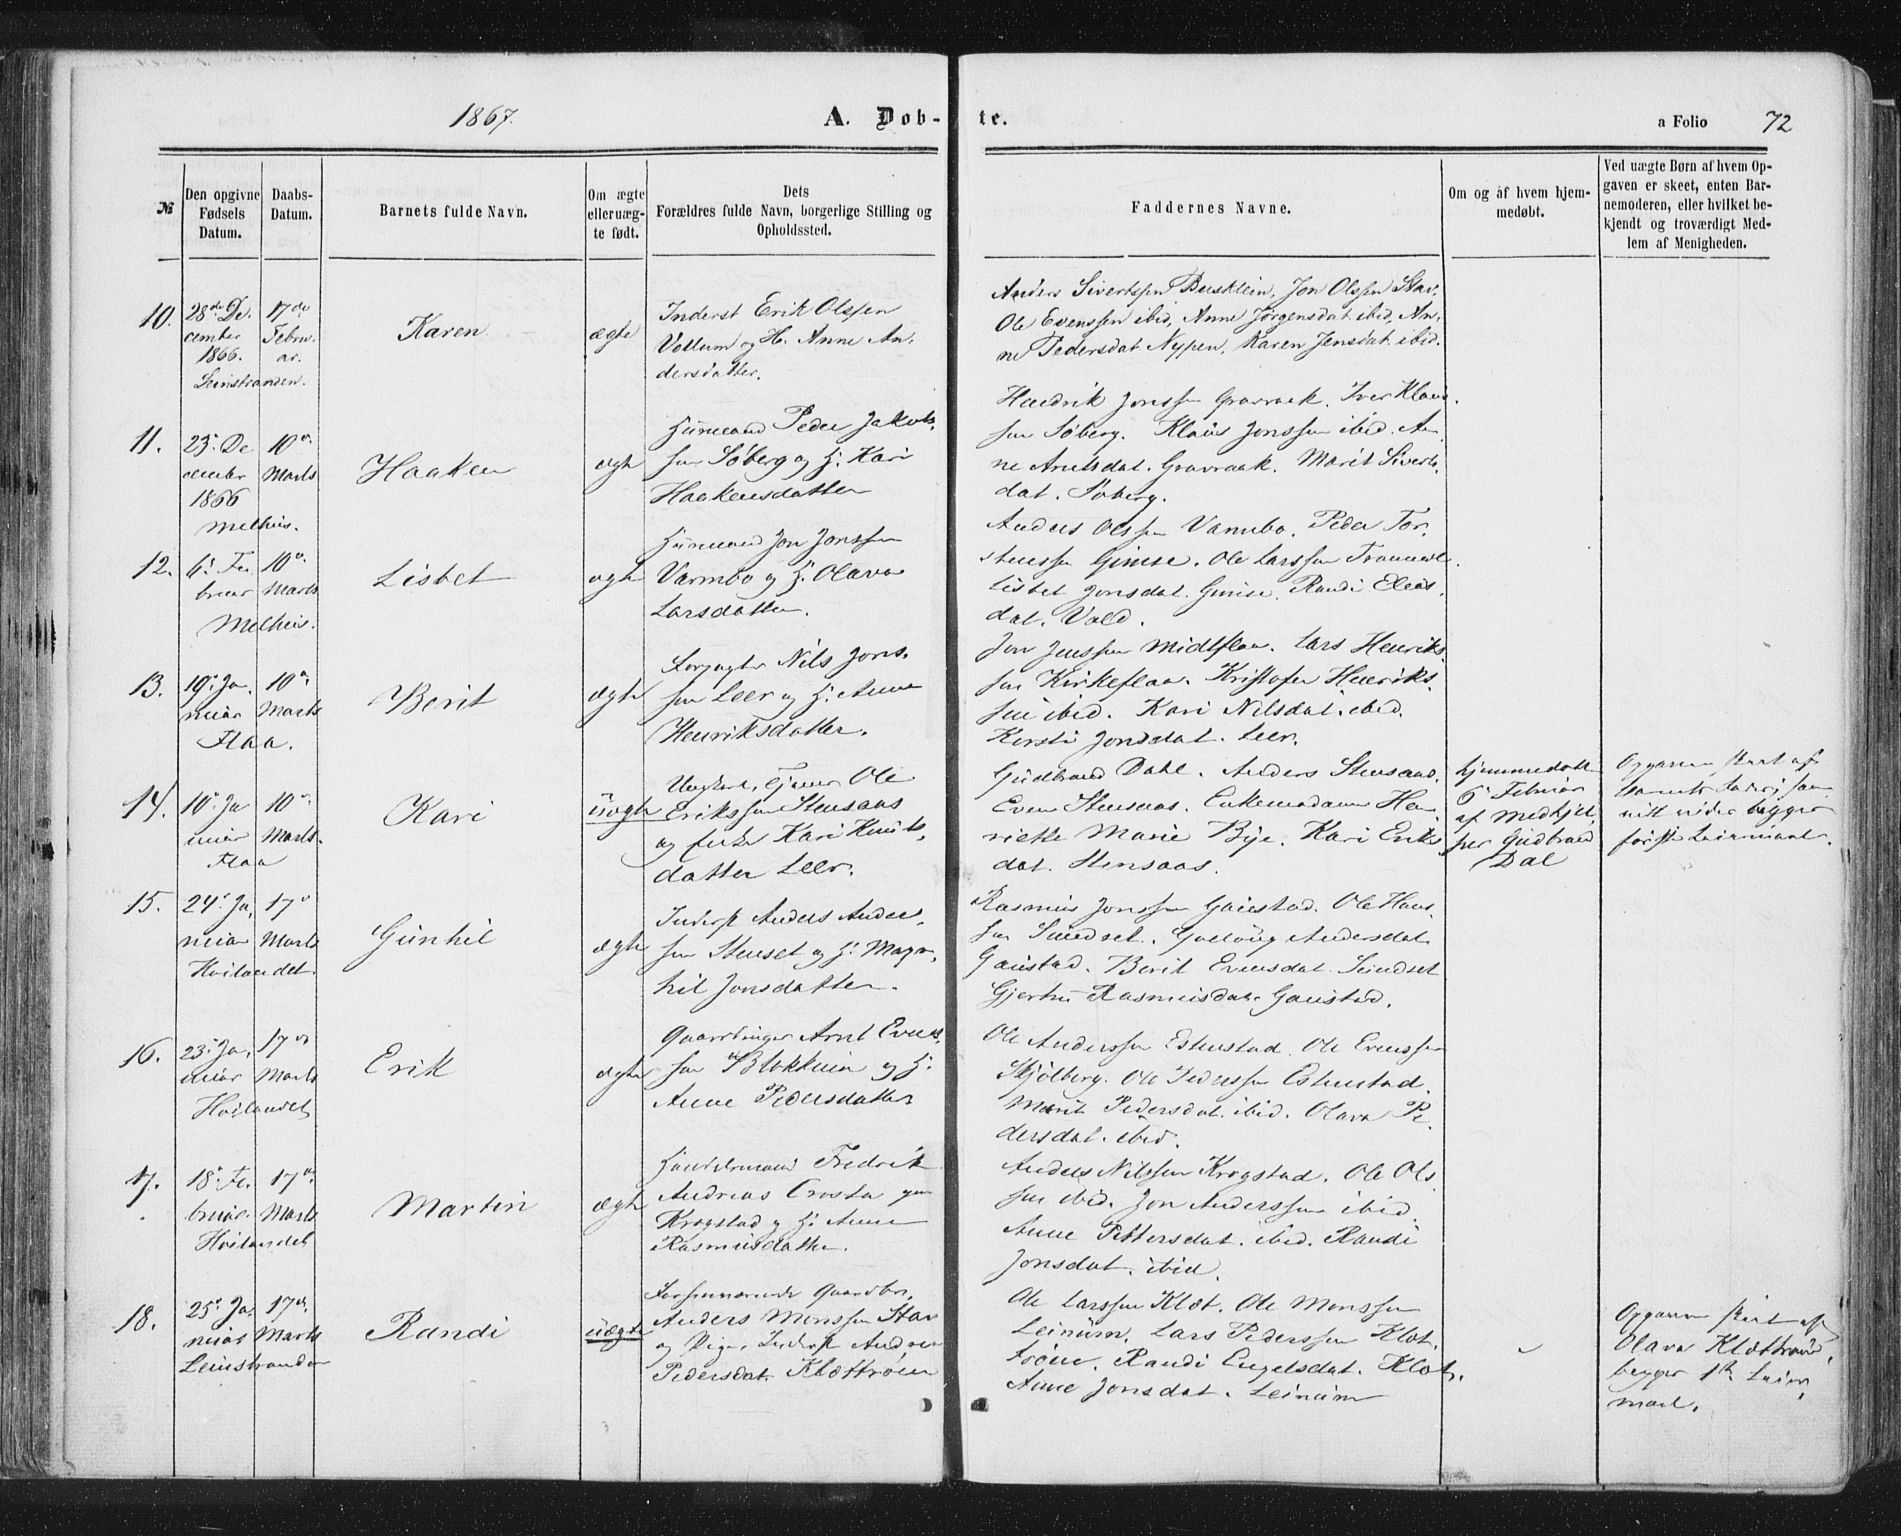 1867.
A. Døb-
te.
a Folio 72
№
Den opgivne
Fødsels
Datum.
Daabs-
Datum.
Barnets fulde Navn.
Om ægte
eller uæg-
te født.
Dets
Forældres fulde Navn, borgerlige Stilling og
Opholdssted.
Faddernes Navne.
Om og af hvem hjem-
medøbt.
Ved uægte Børn af hvem Op-
gaven er skeet, enten Bar-
nemoderen, eller hvilket be-
kjendt og troværdigt Med-
lem af Menigheden.
10.
28de De-
cember
1866.
Leinstranden.
17de
Febru-
ar.
Karen
ægte
Inderst Erik Olssen
Vollum og H. Anne An-
dersdatter.
Anders Sivertssen Jon Olssen Stav.
Ole Evenssen ibid, Anne Jørgensdat ibid, An-
ne Pedersdat Nypen, Karen Jensdat ibid.
11.
23. De
cember
1866
Melhus.
10.
Marts
Haaken
ægte
Huusmand Peder Jakobs-
sen Søberg og H. Kari
Haakensdatter
Hendrik Jonssen Gravraak. Iver Klaus-
sen Søberg. Klaus Jonssen ibid. An-
ne Arntsdat. Gravraak. Marit Siverts-
dat. Søberg.
12.
6. Fe
bruar
Melhus.
10.
Marts
Lisbet
ægte
Huusmand Jon Jonssen
Varmbo og H. Olava
Larsdatter.
Anders Olssen Varmbo. Peder Tor-
stenssen Gimse. Ole Larssen
Lisbet Jonsdat. Gimse. Randi Eleas-
dat. Vold.
13.
19. Ja-
nuar
Flaa.
10.
Marts
Berit
ægte
Forpagter Nils Jons-
sen Leer og H. Anne
Henriksdatter.
Jon Jenssen Midtflaa. Lars Henriks-
sen Kirkeflaa. Kristofer Henriks-
sen ibid. Kari Nilsdat. ibid.
Kersti Jonsdat. Leer.
14.
10. Ja
nuar
Flaa
10.
Marts.
Kari
uægte
Ungkarl, Tjener Ole
Erikssen Stensaas
og Kari Knuts-
datter Leer.
Gudbrand Dahl. Anders Stensaas.
Even Stensaas. Enkemadame Hen-
riette Marie Bye. Kari Eriks-
dat. Stensaas.
hjemmedøbt
6. Februar
af Medhjel-
per Gudbrand
Dal
Opgaven skeet af
begges
første Leiermaal.
15.
24. Ja-
nuar
Høilandet.
17.
Marts
Gunhil
ægte
Inderst Anders Anders-
sen Stenset og H. Magn-
hil Jonsdatter.
Rasmus Jonssen Gaustad. Ole Hans-
sen Sundset. Andersdat.
Gaustad. Berit Evensdat. Sundset
Rasmusdat. Gaustad.
16.
23. Ja-
nuar
Høilandet
17.
Marts
Erik
ægte
Gaardbruger Arnt Evens-
sen Blekkuin og H.
Anne Pedersdatter
Ole Anderssen Estenstad. Ole Evenssen
Skjølberg. Ole Pederssen Estenstad.
Marit Pedersdat. ibid. Olava Pe-
dersdat. ibid.
17.
18. Fe-
bruar.
Høilandet
17.
Marts
Martin
ægte
Handelsmand Fredrik
Andreas Crosta
Krogstad og H. Anne
Rasmusdatter.
Anders Nilssen Krogstad. Ole Ols-
sen ibid. Jon Anderssen ibid.
Anne Pettersdat. ibid. Randi
Jonsdat. ibid.
18.
25. Ja-
nuar
Leinstranden
17.
Marts
Randi
uægte
Forhenværende Gaardbr.
Anders Monssen Stav
og Pige, Inderst
Pedersdat. Klættrøen
Ole Larssen Klæt. Ole Monssen
Leinum. Lars Pederssen Klæt-
trøen. Randi Engelsdat. Klæt.
Anne Jonsdat. Leinum
Opgaven skeet af
Olava Klættrøen,
begges 1ste Leier-
maal.